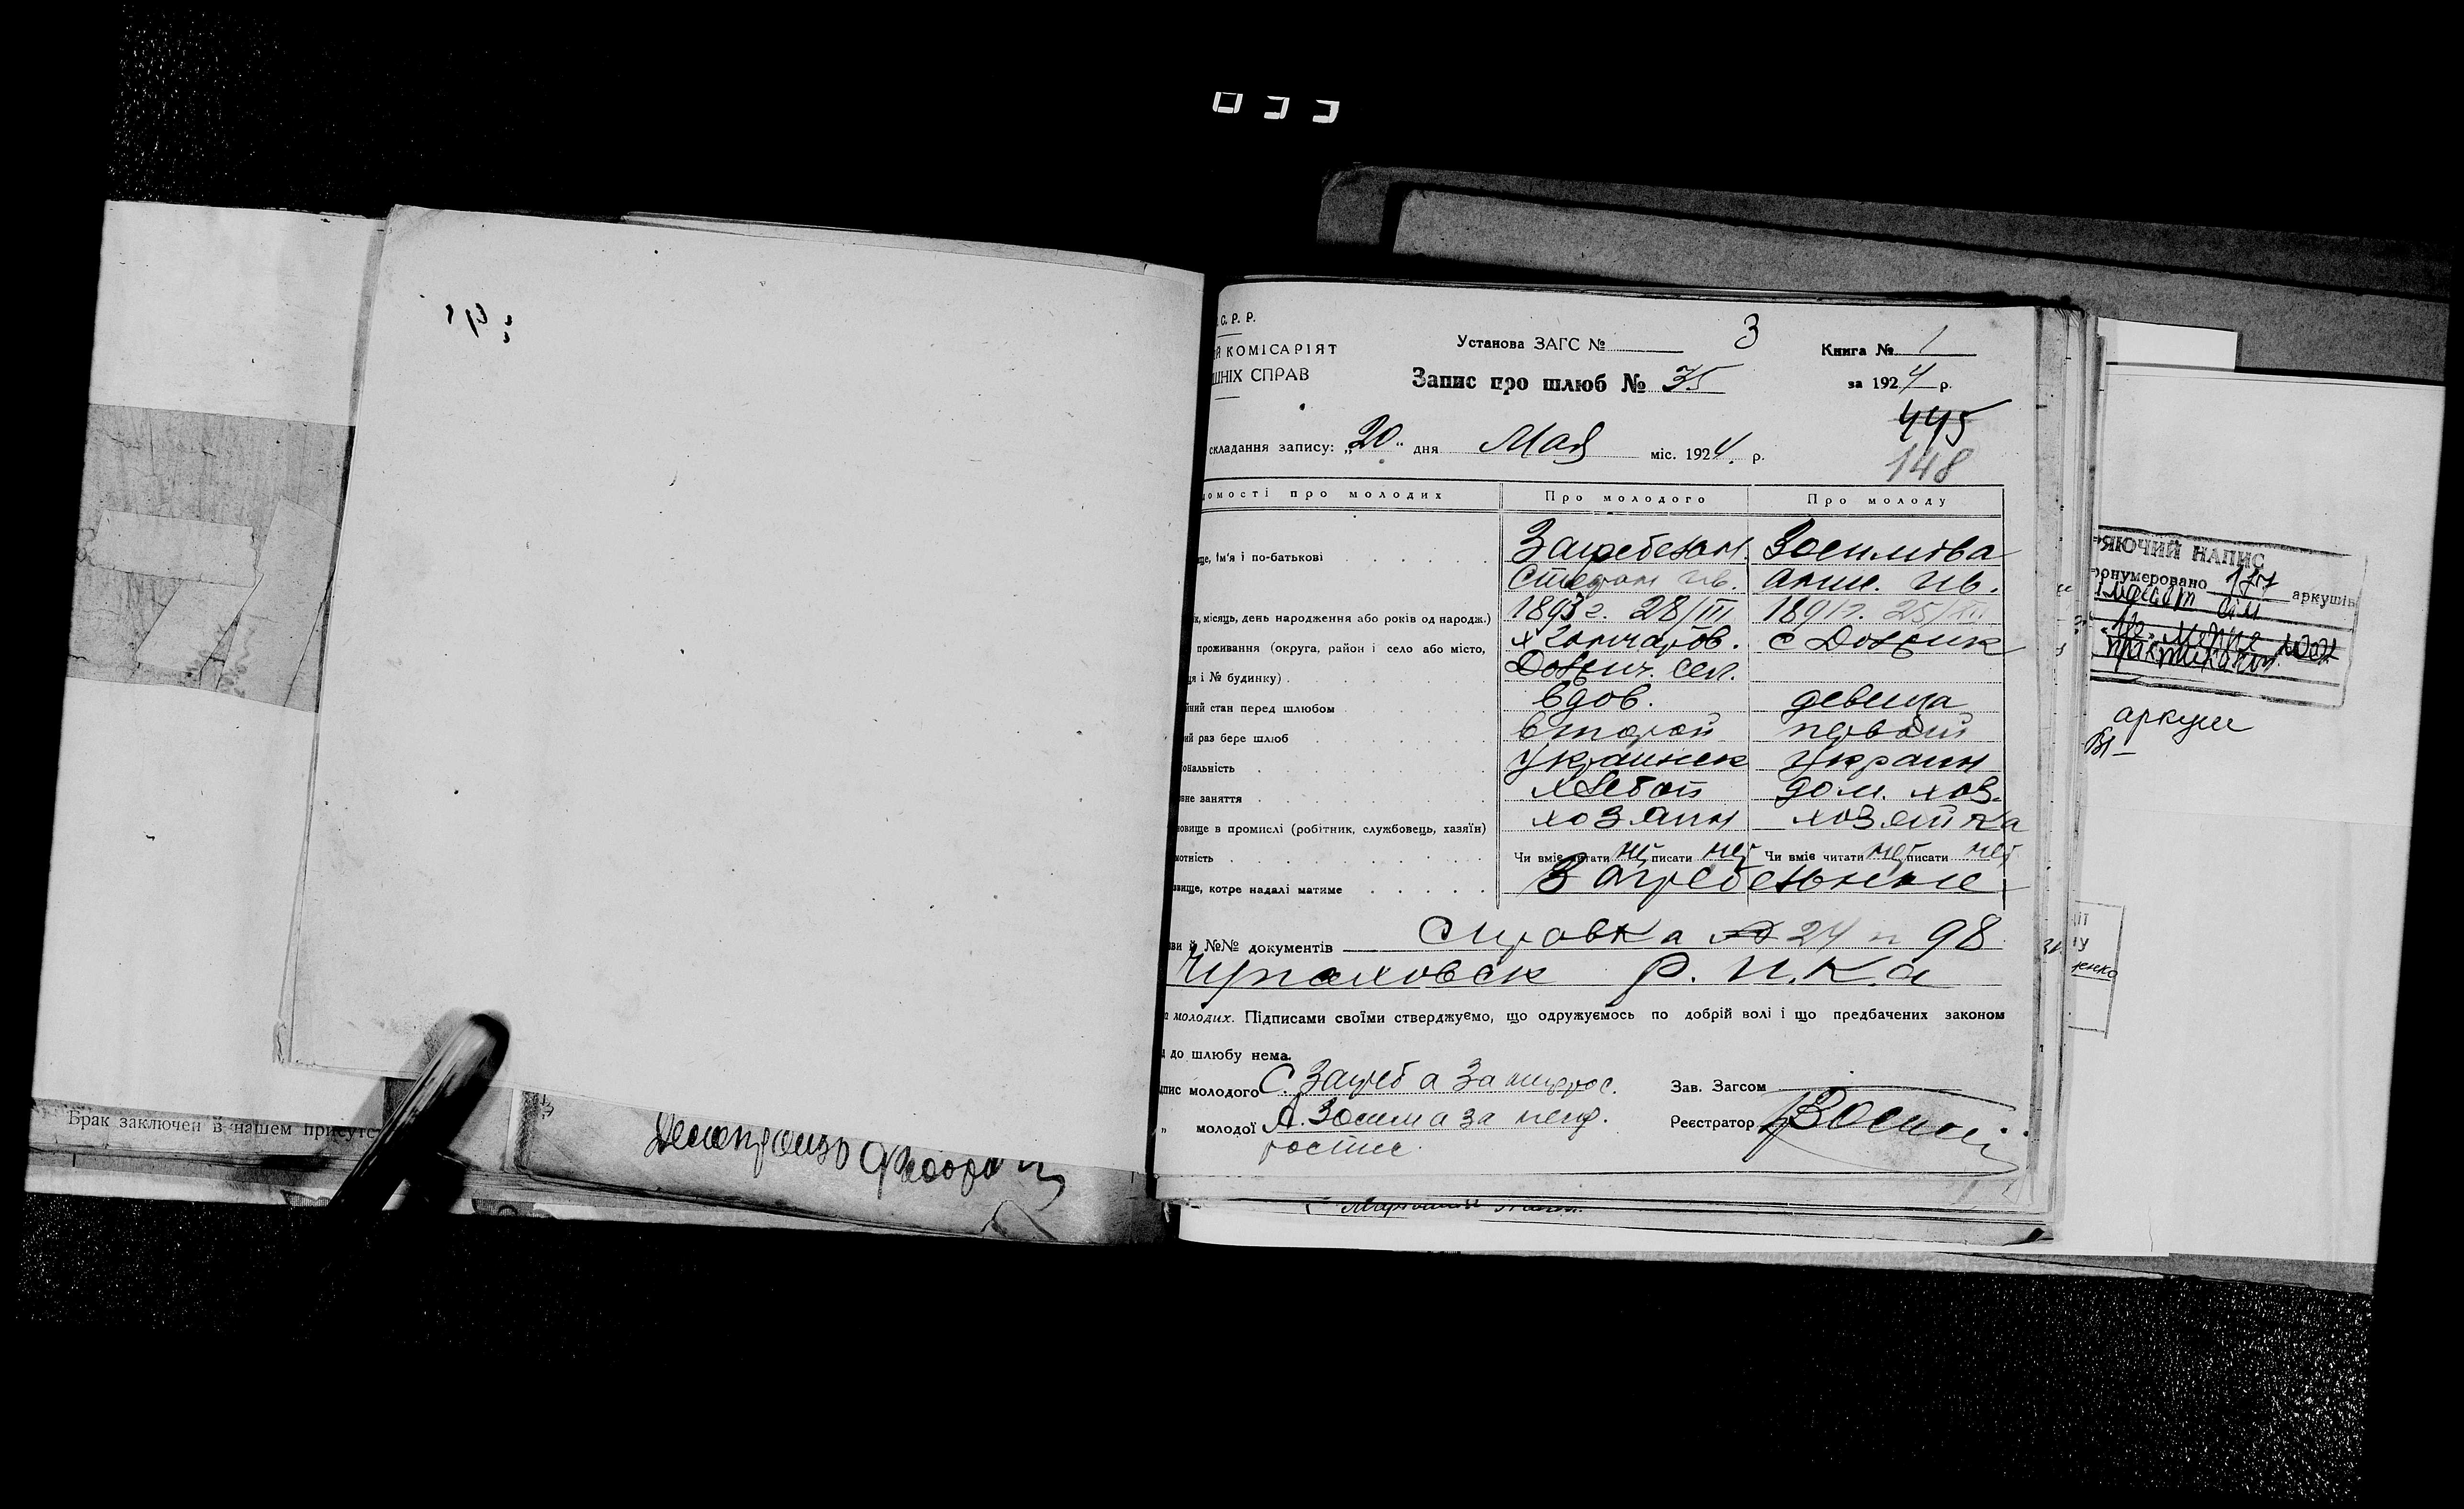 С. Р. Р.
Й КОМІСАРІЯТ
ШНІХ СПРАВ
Установа ЗАГС №
3
Книга № 1
Запис про шлюб № 35
за 1924 р.
445
148
складання запису: „20“ дня Мая міс. 1924 р.
омості про молодих
Про молодого
Про молоду
ще, ім'я і по-батькові
Загребельн.
Зосимова
Стефан Ив.
Анне. Ив.
к, місяць, день народження або років од народж.)
1893 г. 28/III
1891 г. 25/III.
проживання (округа, район і село або місто,
х Гончаров.
с Довжик
ця і № будинку)
Довжич. сел.
йний стан перед шлюбом
вдов.
девица
ий раз бере шлюб
второй
первый
ональність
Украинск
Украин
вне заняття
хлебоп
дом. хоз.
новище в промислі (робітник, службовець, хазяїн)
хозяин
хозяйка
мотність
Чи вміє читати нет писати нет
Чи вміє читати нет писати нет
звище, котре надалі матиме
Загребельные
ви й №№ документів Справка № 24 и 98
Р. И. К. а
молодих. Підписами своїми стверджуємо, що одружуємось по добрій волі і що предбачених законом
до шлюбу нема.
пис молодого С. Загреб а за неграс.
Зав. Загсом
„ молодої А. Зосим а за негр.
роспис.
Реєстратор
Брак заключен в нашем присутс
ЯЮЧИЙ НАПИС
ронумеровано аркушів
аркуш